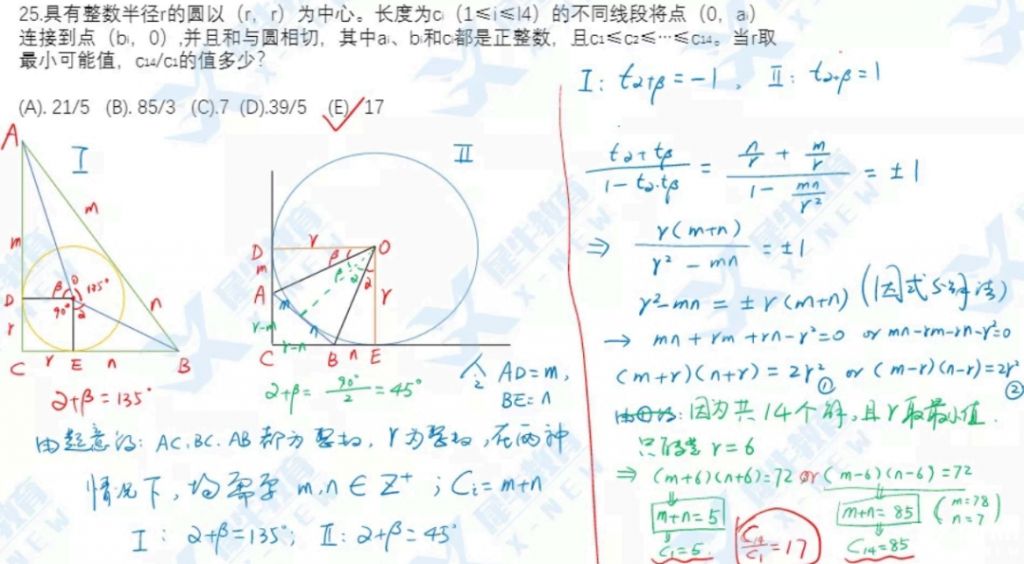 25.具有整数半径r的圆以（r，r）为中心。长度为cᵢ（1⩽i⩽l4）的不同线段将点（0，aᵢ）
连接到点（bᵢ，0）,并且和与圆相切，其中aᵢ、bᵢ和cᵢ都是正整数，且c₁⩽c₂⩽···⩽c₁₄。当r取
最小可能值，c₁₄/c₁的值多少?
(A). 21/5 (B). 85/3 (C).7 (D).39/5 (E) 17
I
A
m
m
D
β
O
135°
90°
2
n
r
C
r
E
n
B
2+β=135°
II
D
r
O
m
β
β
2
2
A
m
r
r-m
n
C
r-n
B
n
E
2+β= 90°/2 =45°
令 AD=m,
BE=n
由题意的: AC.BC.AB都为整数, r为整数,在两种
情况下,均需要 m,n∈Z⁺ ; Cᵢ=m+n
I: 2+β=135°; II: 2+β=45°
I: t2+β=-1, II: t2+β=1
(t2+tβ)/(1-t2·tβ) = (n/r + m/r)/(1 - mn/r²) = ±1
⇒ r(m+n)/(r²-mn) = ±1
r²-mn = ±r(m+n) (因式分解法)
→ mn+rm+rn-r²=0 or mn-rm-rn-r²=0
(m+r)(n+r)=2r² ① or (m-r)(n-r)=2r² ②
因为共14个解,且r取最小值.
r=6
⇒ (m+6)(n+6)=72 or (m-6)(n-6)=72
m+n=5
m+n=85
(m=78
n=7)
C₁=5
C₁₄/C₁=17
C₁₄=85
犀牛教育
X-NEW